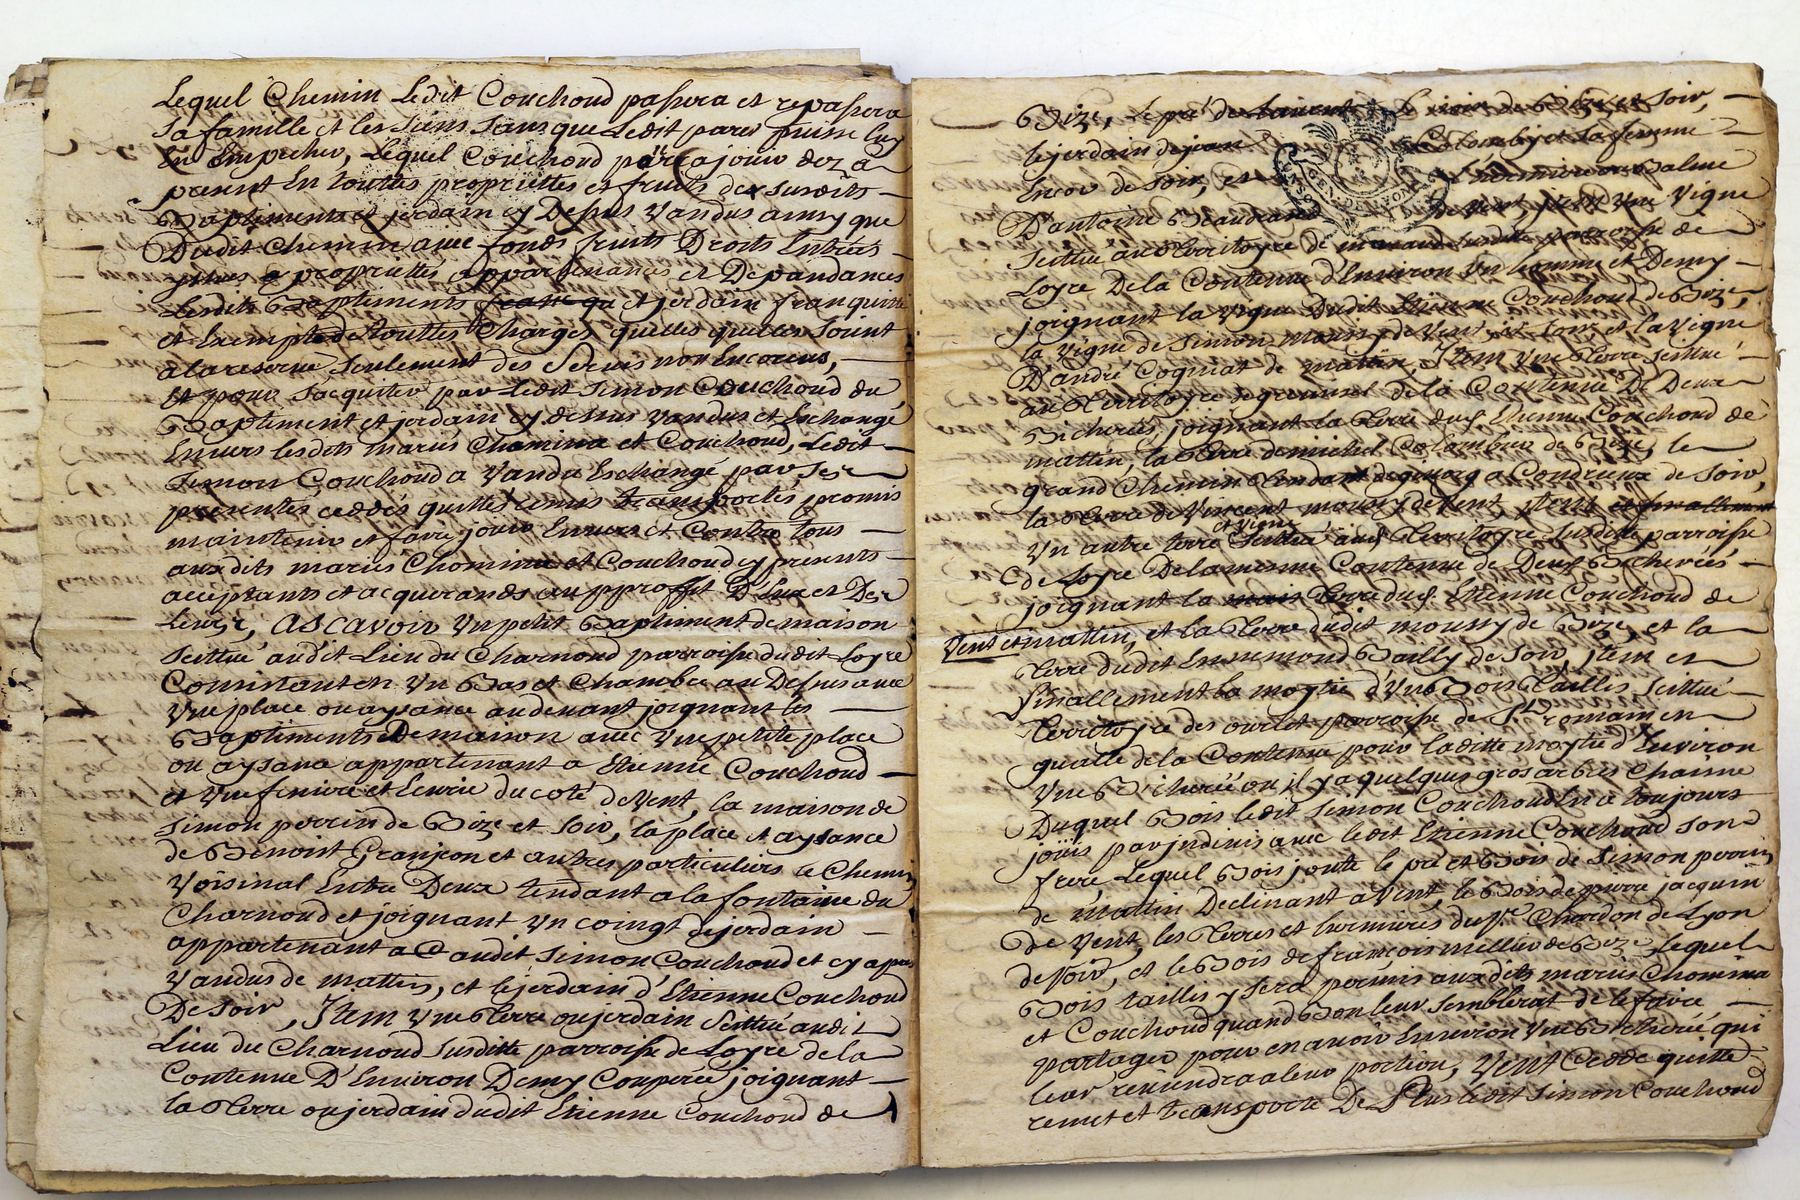 Lequel Chemin Ledit Couchoud passera et repassera
Sa famille et les Siens Sans que Ledit puisse luy
En Empecher, Lequel Couchoud jouir dez a
present En touttes propriettes et fruits des susdits
Baptiments et jerdain cy Dessus Vandus ainsy que
Dudit Chemin avec fonds fruits Droits Entrées
proprietés appartenances et Depandances
Lesdits Baptiments et jerdain
et Exempts de touttes Charges quelles quelles Soient
a la reserve Seulement des Servis non Encourus,
Et pour S'acquiter par Ledit Simon Couchoud du
Baptiment et jerdain cy dessus Vandus et Eschangé
Envers lesdits mariés Chomina et Couchoud, Ledit
Simon Couchoud a Vandu Eschangé par Ses
presentes ceddés quittes remis transportés promis
maintenir et faire jouir Envers et Contre tous
auxdits mariés Chomina et Couchoud cy presents
acceptants et acquerands au proffit D'Eux et Des
Leurs, ASCAVOIR Un petit Baptiment de maison
Scittué audit Lieu du Charnoud parroisse dudit Loyre
Consistant en Un Bas et Chambre au Dessus avec
Une place ou aysance au devant joignant les
Baptiments De maison avec Une petite place
ou aysance appartenant a Etienne Couchoud
et Une feniere et Ecurie du coté de Vent, la maison de
Simon perrin de Bize et Soir, la place et aysance
de Benoist Granjon et autres particuliers le Chemin
Voisinal Entre Deux tendant a la fontaine du
Charnoud et joignant Un coingt de jerdain
appartenant audit Simon Couchoud et cy apres
Vandus de mattin, et le jerdain d'Etienne Couchoud
De Soir, Item Une Terre ou jerdain Scittué audit
Lieu du Charnoud Susditte parroisse de Loyre de la
Contenue D'Environ Demy Couperée joignant
la Terre ou jerdain dudit Etienne Couchoud de
Bize, Le pré de Bize et Soir,
le jerdain de jean Colomby et Sa femme
Encor de Soir, et
D'antoine de Vent, Item Une Vigne
Scittué au Territoyre De Susditte parroisse de
Loyre De la Contenue d'Environ Un homme et Demy
joignant la Vigne Dudit Etienne Couchoud de Bize,
la Vigne de Simon moussy de Vent et Soir et la Vigne
D'andré Cogniat de mattin, Item Une Terre Scittué
au Territoyre de la Contenue De Deux
Bicherées, joignant la Terre dud. Etienne Couchoud de
mattin, la Terre de michel Colombier de Bize, le
grand Chemin tendant a Condrieux de Soir,
la Terre de Vincent moussy de Vent, Item et finallement
et Vigne
Un autre terre Scittué aud. Territoyre Susditte parroisse
de Loyre De la mesme Contenue de Deux Bicherées
joignant la Terre dud. Etienne Couchoud de
Vent et mattin, et la Terre dudit moussy de Bize et la
Terre dudit Ennemond Bailly de Soir, Item et
finallement la moytié d'Une Bois Taillis, Scittué
Territoyre des ourlet parroisse de St. romain en
gualle de la Contenue pour laditte moytié d'Environ
Une Bicherée ou il y a quelques gros arbres Chainne
Duquel Bois ledit Simon Couchoud En a toujours
joüis par jndivis avec ledit Etienne Couchoud Son
frere Lequel Bois joute le pré et Bois de Simon perrin
de mattin Declinant a Vent, le Bois de pierre jacquin
De Vent, les Terres et hermieres du Sr. Chardon de Lyon
de Soir, et le Bois de francois millier de Bize, lequel
Bois taillis y Sera permis auxdits mariés Chomina
et Couchoud quand Bon leur Semblerat de le faire
partager pour en avoir Environ Une Bicherée qui
leur reviendra a leur portion, Vent Cedde quitte
remet et transporte De Plus ledit Simon Couchoud